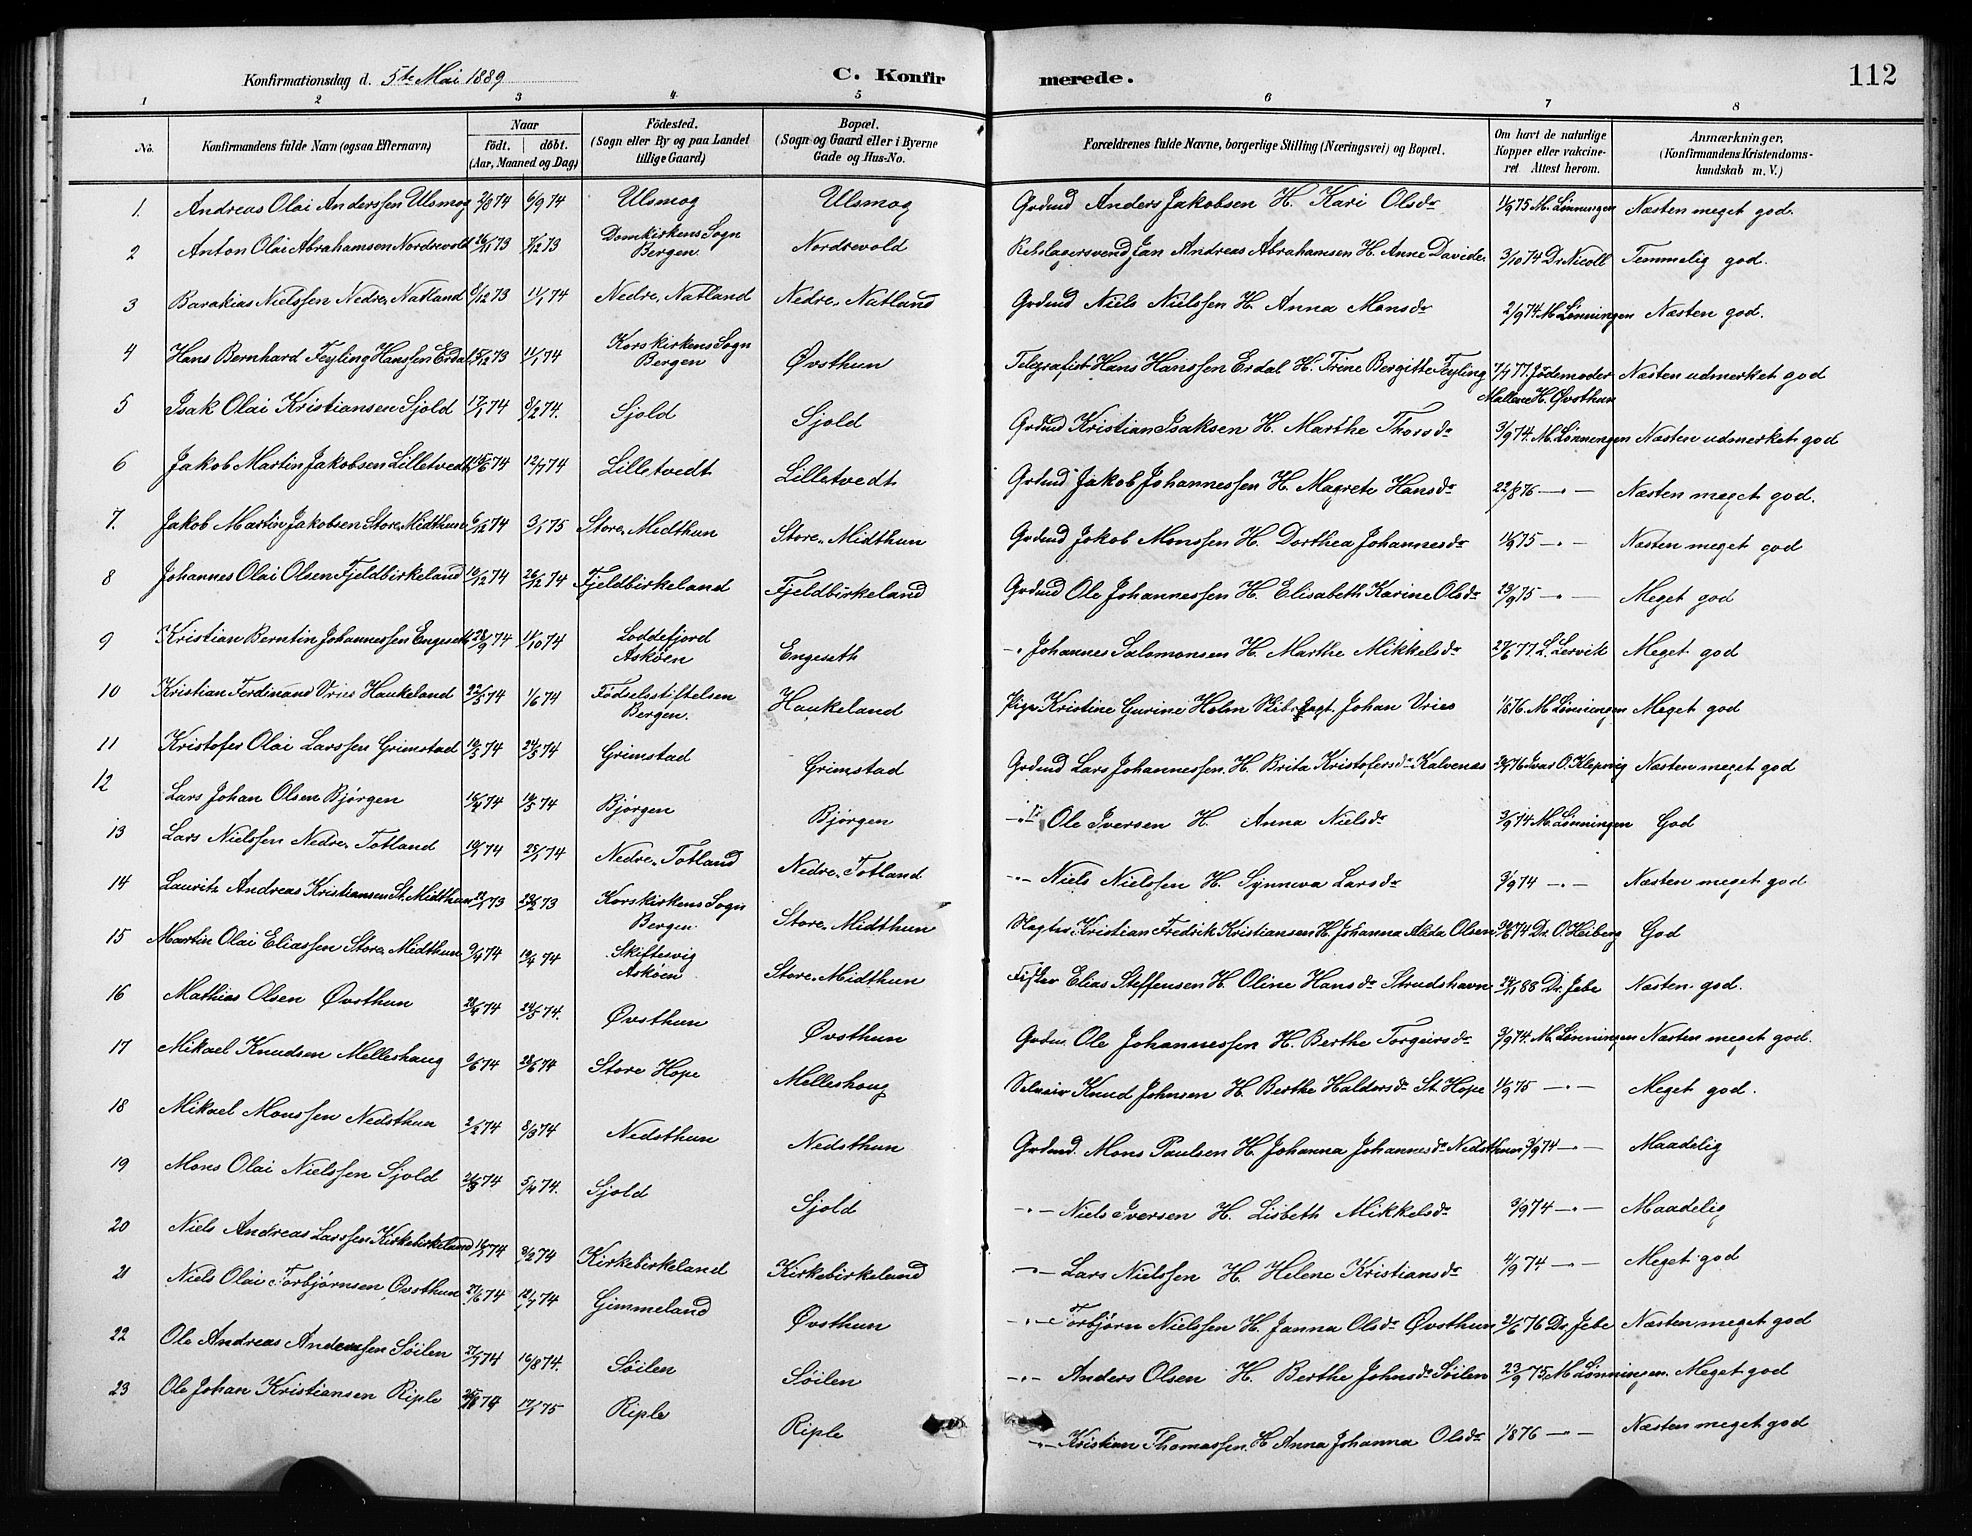 Konfirmationsdag d. 5te Mai 1889
C. Konfirmerede.
112
1 2 3 4 5 6 7 8
No. Konfirmandens fulde Navn (ogsaa Efternavn) Naar født. døbt. (Aar, Maaned og Dag) Födested. (Sogn eller By og paa Landet tillige Gaard) Bopæl. (Sogn og Gaard eller i Byerne Gade og Hus-No. Forældrenes fulde Navne, borgerlige Stilling (Næringsvei) og Bopæl. Om havt de naturlige Kopper eller vakcineret Attest herom. Anmærkninger, (Konfirmandens Kristendomskundskab m. V.)
1. Andreas Olai Anderssen Ulsmog 2/8 74 6/9 74 Ulsmog Ulsmog Grdmd Anders Jakobsen H. Kari Olsdr 1/9 75 M. Lønningen Næsten meget god.
2 Anton Olai Abrahamsen Nordrevold 73 7/12 73 Domkirkens Sogn Bergen. Nordrevold Rebslagersvend Jan Andreas Abrahamsen H. Anne Davidsdr 3/10 74 Dr Nicoll Temmelig god.
3 Barakias Nielssen Nedre Natland 6/12 73 11/1 74 Nedre Natland Nedre Natland Grdmd Niels Nielssen H. Anna Monsdr 2/9 74 M. Lønningen Næsten god.
4 Hans Bernhard Feyling Hanssen Erdal 15/12 73 11/1 74 Korskirkens Sogn Bergen Øvsthun Telegrafist Hans Hanssen Erdal H. Trine Bergitte Feyling 7/4 77. Jødemoder Mallene H. Øvsthun Næsten udmerket god
5 Isak Olai Kristiansen Sjold 17/1 74 8/2 74. Sjold Sjold Grdmd Kristian Isaksen H. Marthe Thorsdr 3/9 74. M. Lønningen Næsten udmerket god
6 Jakob Martin Jakobsen Lilletvedt 15/6 74 12/7 74 Lilletvedt Lilletvedt Grdmd Jakob Johannessen H. Magrete Hansdr 22/8 76 —"— Næsten meget god.
7. Jakob Martin Jakobsen Store Midthun 6/12 74 3/1 75 Store Midthun Store Midthun Grdmd Jakob Monssen H. Dorthea Johannesdr 1/9 75 —"— Næsten meget god
8 Johannes Olai Olsen Fjeldbirkeland 10/12 74 26/12 74 Fjeldbirkeland Fjeldbirkeland Grdmd Ole Johannessen H. Elisabeth Karine Olsdr 23/9 75 —"— Meget god
9 Kristian Berntin Johannessen Engeseth 28/9 74 11/10 74 Loddefjord Askøen Engeseth —"— Johannes Salomonsen H. Marthe Mikkelsdr 27/6 77. L. Lervik Meget god
10 Kristian Ferdinand Vries Haukeland 22/5 74 1/6 74 Fødselsstiftelsen Bergen. Haukeland Pige Kristine Gurine Holm Johan Vries 1/8 76. M. Lønningen Meget god
11 Kristofer Olai Larssen Grimstad 10/5 74 24/5 74 Grimstad Grimstad Grdmd Lars Johannessen. H. Brita Kristofersdr Kalvenæs Ivar O. Kleppvig Næsten meget god
12 Lars Johan Olsen Bjørgen 74 74 Bjørgen Bjørgen —"— Ole Iversen H. Anna Nielsdr 3/9 74 M. Lønningen God
13 Lars Nielssen Nedre Totland 74 74 Nedre Totland Nedre Totland —"— Niels Nielssen H. Synneva Larsdr 3/9 74 —"— Næsten meget god
14 Lauritz Andreas Kristiansen St. Midthun 73 73 Korskirkens Sogn Bergen. Store Midthun Slagter Kristian Fredrik Kristiansen H. Johanna Alida Olsen 74 Dr. O. Heiberg God
15 Martin Olai Eliassen Store Midthun 9/4 74 19/4 74 Skiftesvig Askøen Store Midthun Fisker Elias Steffensen H. Oline Hansdr Strudshavn 88 Dr. Jebe Næsten god.
16 Mathias Olsen Øvsthun 74 24/5 74. Øvsthun Øvsthun Grdm. Ole Johannessen H. Berthe Torgeirsdr 3/9 74. M. Lønningen Næsten meget god.
17 Mikael Knudsen Melleshaug 9/6 74 28/6 74 Store Hope Melleshaug Selveier Knud Johnsen H. Berthe Haldorsdr St. Hope 1/9 75 —"— Meget god.
18 Mikael Monssen Nedsthun 2/2 74 8/3 74 Nedsthun Nedsthun Grdmd. Mons Paulsen H. Johanna Johannesdr Nedsthun 3/9 74 —"— Maadelig
19 Mons Olai Nielssen Sjold 74 5/4 74. Sjold Sjold —"— Niels Iversen H. Lisbeth Mikkelsdr 3/9 74 —"— Maadelig
20 Niels Andreas Larssen Kirkebirkeland 74 8/2 74 Kirkebirkeland Kirkebirkeland —"— Lars Nielssen H. Helene Kristiansdr 4/9 74 —"— Meget god
21 Niels Olai Torbjørnsen Øvsthun 27/6 74 12/7 74 Gimmeland Øvsthun —"— Torbjørn Nielssen H. Janna Olsdr Øvsthun 21/6 76 Dr. Jebe Næsten meget god
22 Ole Andreas Anderssen Søilen 27/7 74 16/8 74. Søilen Søilen —"— Anders Olsen H. Berthe Johnsdr Søilen 23/9 75 M. Lønningen. Meget god
23 Ole Johan Kristiansen Riple 74 17/1 75 Riple Riple —"— Kristian Thomassen. H. Anna Johanna Olsdr 1/8 76 —"— Næsten meget god